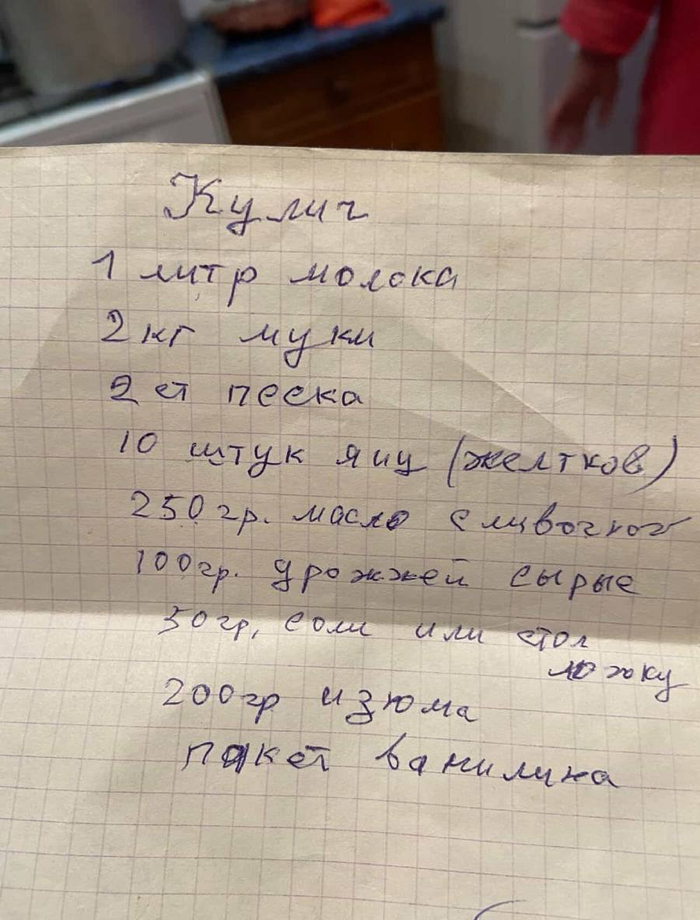 Кулич
1 литр молока
2 кг муки
2 ст песка
10 штук яиц (желтков)
250 гр. масло сливочног
100 гр. дрожжей сырые
50 гр, соли или стол
ложку
200 гр изюма
пакет ванилина